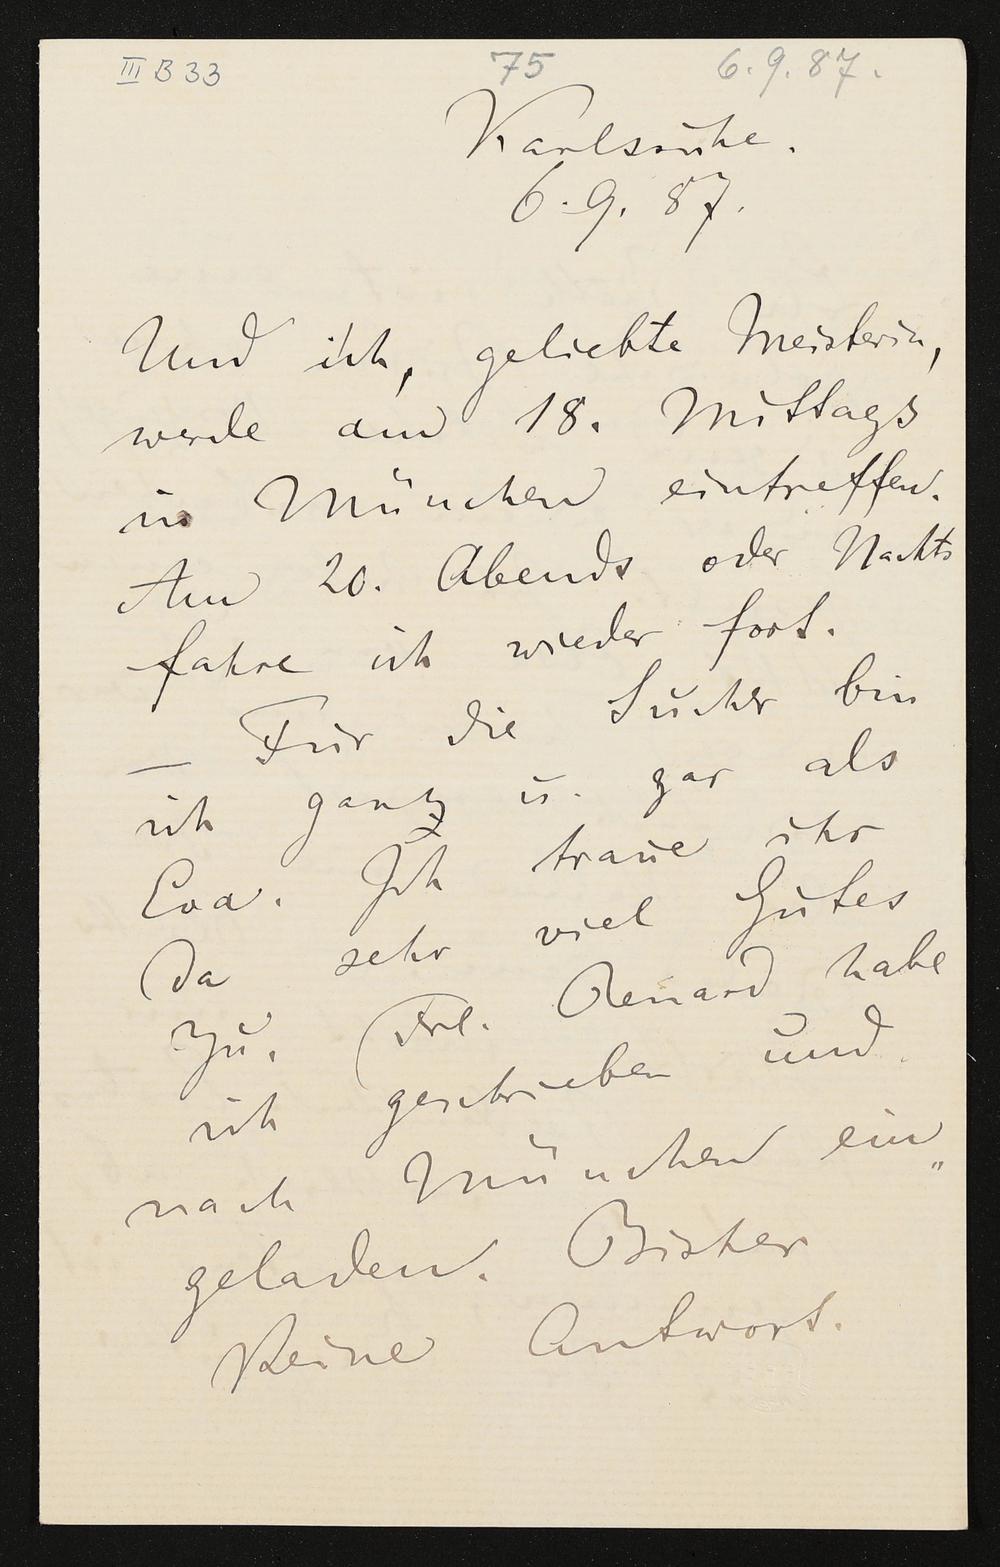 III B 33 75 6.9.87.
Karlsruhe.
6.9.87.
Und ich, geliebte Meisterin,
werde am 18. Mittags
in München eintreffen.
Am 20. Abends oder Nachts
fahre ich wieder fort.
— Für die Sucher bin
ich gantz u. gar als
Eva. Ich traue ihr
da sehr viel Gutes
zu. Frl. Renard habe
ich geschrieben und
nach München ein„
geladen. Bisher
Keine Antwort.